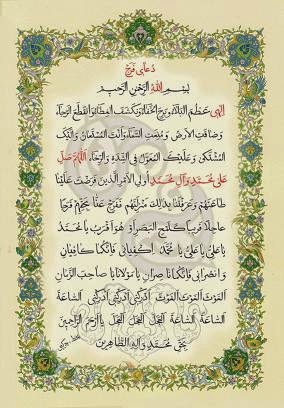 دعای فرج
بِسْمِ اللهِ الرَّحْمٰنِ الرَّحِیْمِ
اِلٰهِی عَظُمَ الْبَلَاءُ وَبَرِحَ الْخَفَاءُ وَانْكَشَفَ الْغِطَاءُ وَانْقَطَعَ الرَّجَاءُ
وَضَاقَتِ الْاَرْضُ وَمُنِعَتِ السَّمَاءُ وَاَنْتَ الْمُسْتَعَانُ وَاِلَیْكَ
الْمُشْتَكٰی وَعَلَیْكَ الْمُعَوَّلُ فِی الشِّدَّةِ وَالرَّخَاءِ اَللّٰهُمَّ صَلِّ
عَلٰی مُحَمَّدٍ وَآلِ مُحَمَّدٍ اُولِی الْاَمْرِ الَّذِیْنَ فَرَضْتَ عَلَیْنَا
طَاعَتَهُمْ وَعَرَّفْتَنَا بِذٰلِكَ مَنْزِلَتَهُمْ فَفَرِّجْ عَنَّا بِحَقِّهِمْ فَرَجًا
عَاجِلًا قَرِیْبًا كَلَمْحِ الْبَصَرِ اَوْ هُوَ اَقْرَبُ یَا مُحَمَّدُ
یَا عَلِیُّ یَا عَلِیُّ یَا مُحَمَّدُ اِكْفِیَانِی فَاِنَّكُمَا كَافِیَانِ
وَانْصُرَانِی فَاِنَّكُمَا نَاصِرَانِ یَا مَوْلَانَا یَا صَاحِبَ الزَّمَانِ
الْغَوْثَ الْغَوْثَ الْغَوْثَ اَدْرِكْنِی اَدْرِكْنِی اَدْرِكْنِی السَّاعَةَ
السَّاعَةَ السَّاعَةَ الْعَجَلَ الْعَجَلَ الْعَجَلَ یَا اَرْحَمَ الرَّاحِمِیْنَ
بِحَقِّ مُحَمَّدٍ وَآلِهِ الطَّاهِرِیْنَ